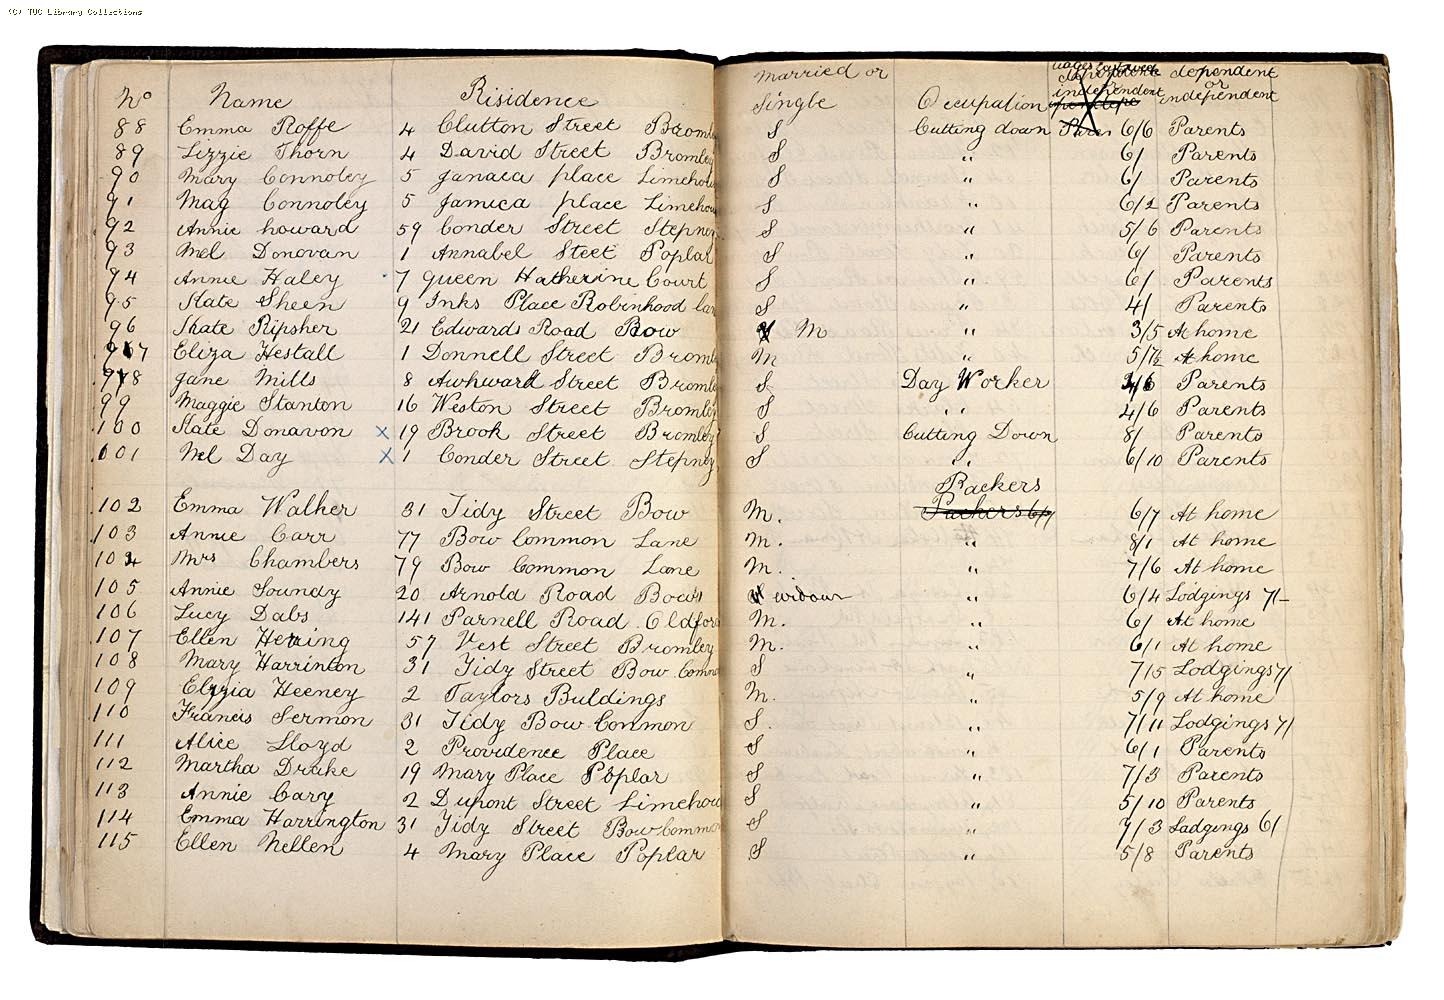 (C) TUC Library Collections
No Name Risidence Married or Single Occupation wages last week dependent or independent
88 Emma Roffe 4 Clutton Street Bromley S Cutting down 6/6 Parents
89 Lizzie Thorn 4 David Street Bromley S " 6/ Parents
90 Mary Connoley 5 Janaca place Limehou S " 6/ Parents
91 Mag Connoley 5 Jamica place Limehou S " 6/2 Parents
92 Annie howard 59 Conder Street Stepney S " 5/6 Parents
93 Mel Donovan 1 Annabel Steet Poplar S " 6/ Parents
94 Annie Haley 7 queen Hatherine Court S " 6/ Parents
95 Kate Sheen 9 Inks Place Robinhood lan S " 4/ Parents
96 Skate Ripsher 21 Edward Road Bow M " 3/5 At home
97 Eliza Hestall 1 Donnell Street Bromley M " 5/7½ At home
98 Jane Mills 8 Awkward Street Bromley S Day Worker Parents
99 Maggie Stanton 16 Weston Street Bromley S " 4/6 Parents
100 Kate Donavon x 19 Brook Street Bromley S Cutting Down 8/ Parents
101 Mel Day x 1 Conder Street Stepney S " 6/10 Parents
Packers
102 Emma Walker 31 Tidy Street Bow M. Packers 6/7 6/7 At home
103 Annie Carr 77 Bow Common Lane M. " 8/1 At home
104 Mrs Chambers 79 Bow Common Lane M. " 7/6 At home
105 Annie Soundy 20 Arnold Road Bow widow " 6/4 Lodgings 7/-
106 Lucy Dabs 141 Parnell Road Oldford M. " 6/ At home
107 Ellen Hering 57 Vest Street Bromley M. " 6/1 At home
108 Mary Harrinton 31 Tidy Street Bow Commo S " 7/5 Lodgings 7/
109 Elzzia Heeney 2 Taylors Buldings M. " 5/9 At home
110 Francis Sermon 31 Tidy Bow Common S. " 7/11 Lodgings 7/
111 Alice Lloyd 2 Providence Place S " 6/1 Parents
112 Martha Drake 19 Mary Place Poplar S " 7/3 Parents
113 Annie Cary 2 Dupont Street Limehou S " 5/10 Parents
114 Emma Harrington 31 Tidy Street Bow Common S " 7/3 Ladgings 6/
115 Ellen Nellen 4 Mary Place Poplar S " 5/8 Parents